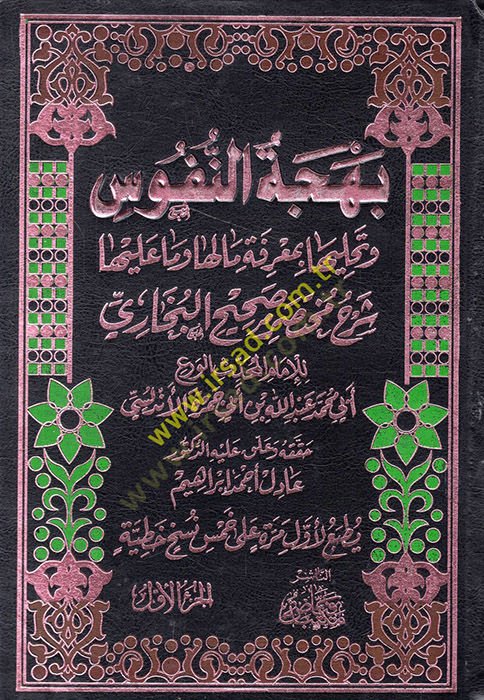 بَهْجَةُ النُّفُوسِ
وتحليها بمعرفة مالها وما عليها
شرح مختصر صحيح البخاري
للإمام المحدث الورع
أبي محمد عبد الله بن أبي جمرة الأندلسي
حققه وعلق عليه الدكتور
عادل أحمد إبراهيم
يطبع لأول مرة على خمس نسخ خطية
الناشر
الجزء الأول
www.irsad.com.tr